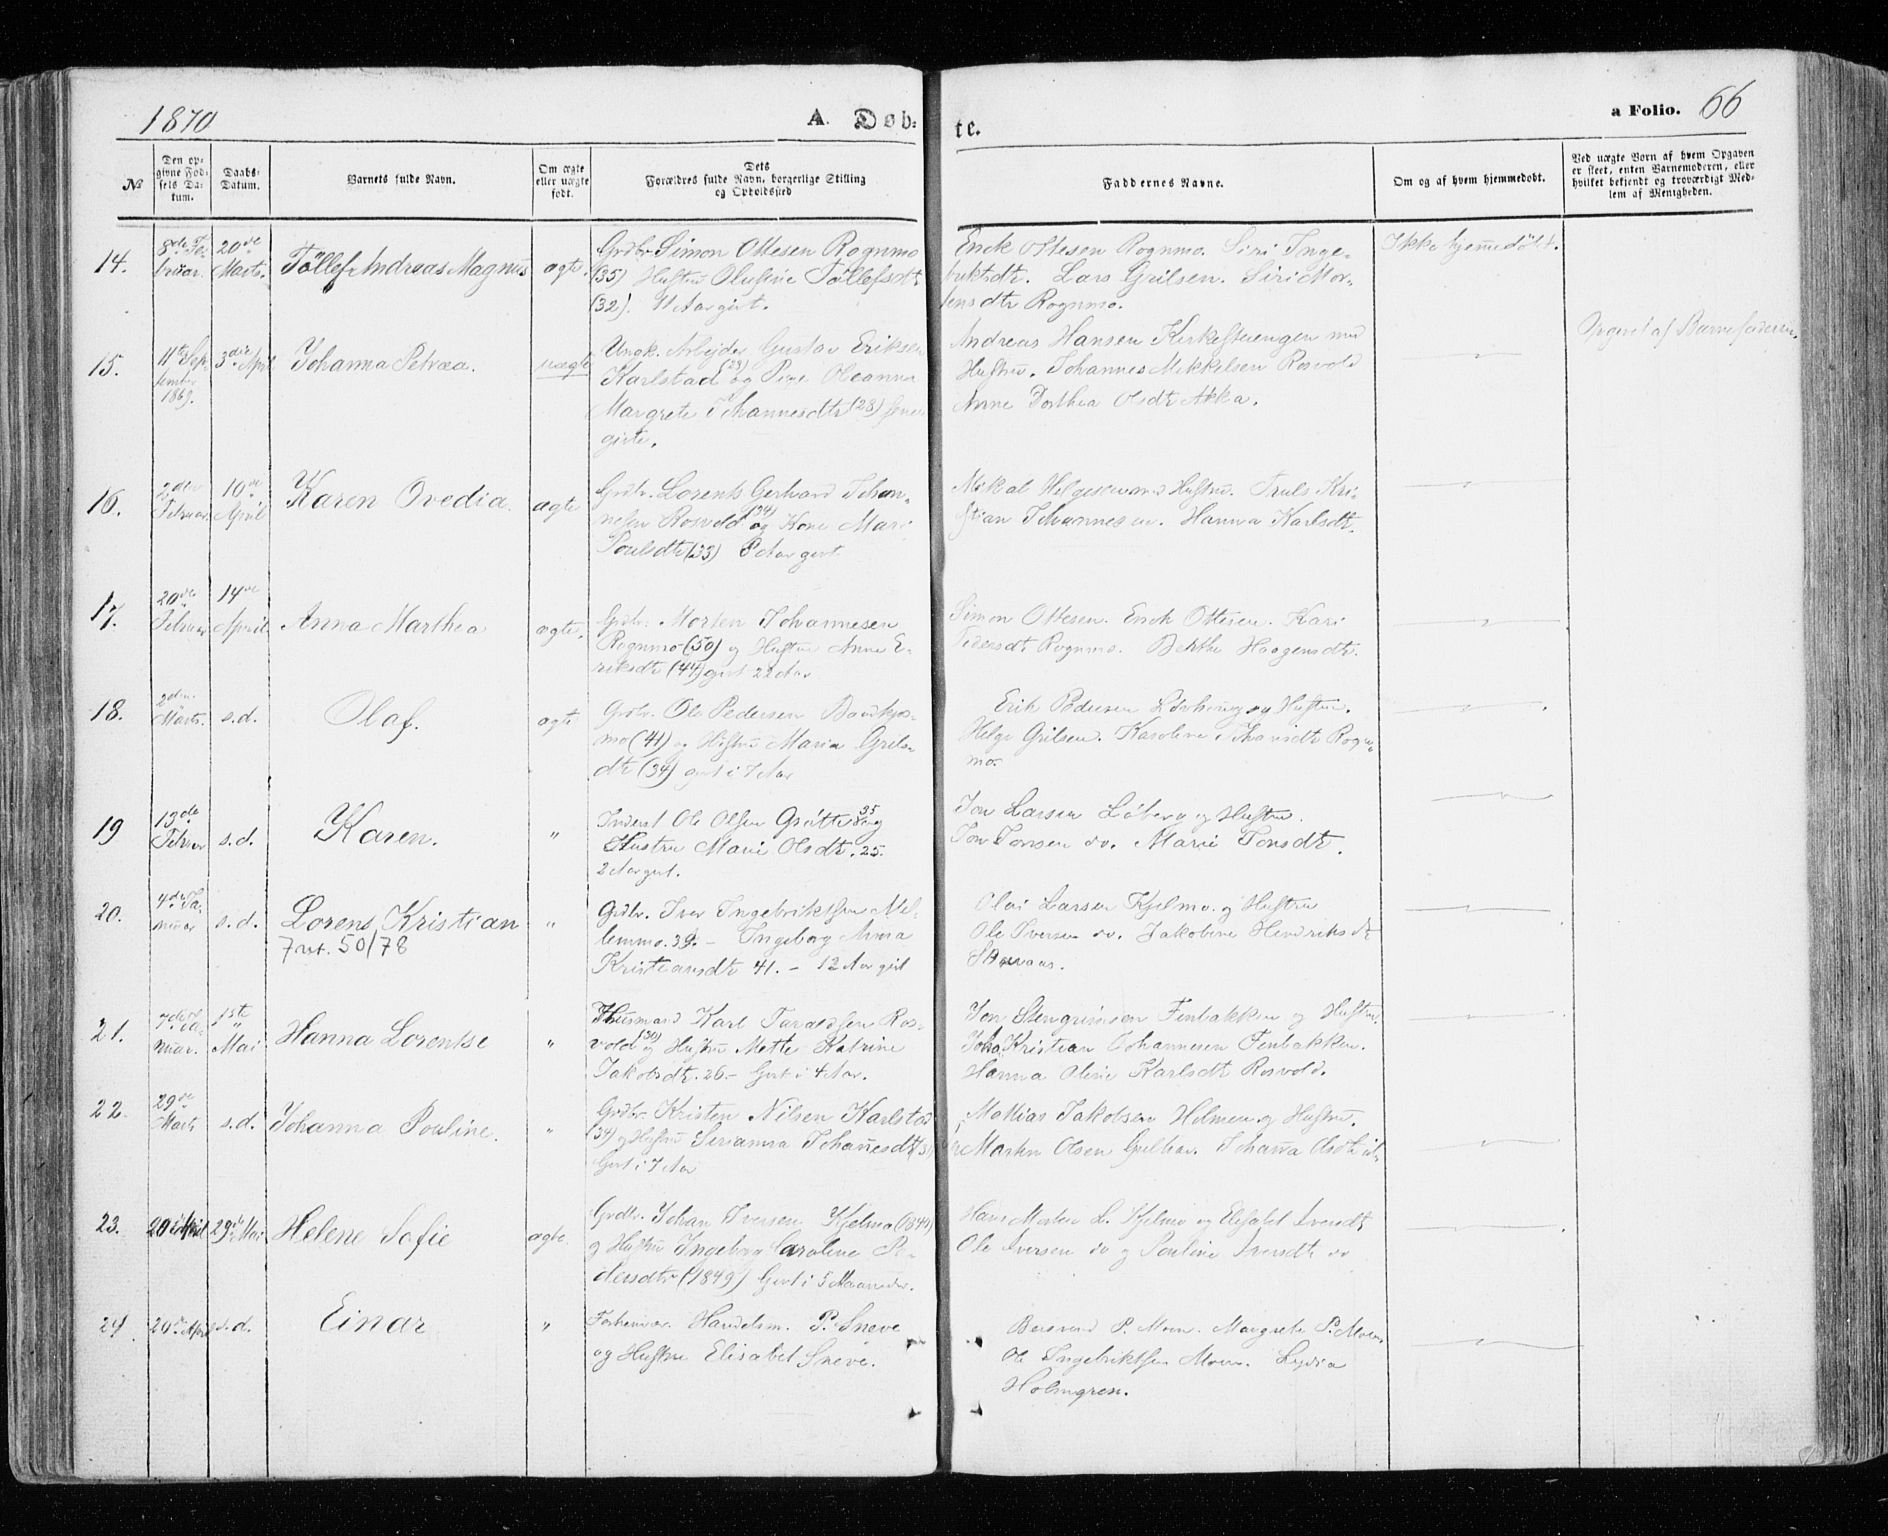 1870
A. Døb-
te.
a Folio. 66
№
Den op-
givne Fød-
sels Da-
tum.
Daabs-
Datum.
Barnets fulde Navn.
Om ægte
eller uægte
født.
Dets
Forældres fulde Navn, borgerlige Stilling
og Opholdssted
Faddernes Navne.
Om og af hvem hjemmedøbt.
Ved uægte Born af hvem Opgaven
er skeet, enten Barnemoderen, eller
hvilket bekjendt og troværdigt Med-
lem af Menigheden.
14.
8de Fe-
bruar.
20de
Marts.
Tøllef Andreas Magnus
ægte.
Grdbr. Simon Ottesen Rognmo
(35) Hustru Olufine Tøllefsdt
(32). 11 Aar gift.
Erick Ottesen Rognmo. Siri Inge-
briktsdtr. Lars Grilsen. Siri Mor-
tensdtr Rognmo.
Ikke hjemmedøbt.
15.
11te Sep-
tember
1869.
3die April
Johanna Petræa.
uægte
Ungk. Arbejder Gustav Eriksen
Karlstad (29) og Pige Oleanna
Margrete Johannesdtr (28)
gifte.
Andreas Hansen Kirkestuengen med
Hustru. Johannes Mikkelsen Rosvold
Anne Dorthea Olsdtr Akka.
Opgivet af Barnefaderen.
16.
2den
Februar
10de
April
Karen Ovedia.
ægte
Grdbr. Lorents Gerhard Johan-
nesen Rosvold (34) og Kone Mari
Poulsdtr (33) Aar gift.
Mikal Helgesen og Hustru. Truls Kri-
stian Johannesen. Hanna Karlsdtr.
17.
20de
Februar
14de
April
Anna Marthea
ægte.
Grdbr. Morten Johannesen
Rognmo (50) og Hustru Anne E-
riksdtr (44) gift 22 Aar
Simon Ottesen. Erick Ottesen. Kari
Pedersdt Rognmo. Berthe Haagensdtr.
18.
2den
Marts.
s.d.
Olaf.
ægte
Grdbr. Ole Pedersen
mo (41) og Hustru Maria Grils-
dtr (34) gift i 7 Aar
Erik Pedersen og Hustru.
Helge Grilsen. Karoline Rogn-
mo.
19
13de
Februar
s.d.
Karen.
"
Inderst Ole Olsen Grøtte 35 og
Hustru Marie Olsdt. 25.
2 Aar gift.
Jon Larsen Løberg og Hustru.
Jon Jonsen do. Marie Jonsdt.
20.
4de Ja-
nuar
s.d.
Lorens Kristian
7 att. 50/78
"
Grdbr. Iver Ingebriktsen Mel-
lemmo. 39. – Ingeborg Anna
Kristiansdtr 41. – 12 Aar gift
Olai Larsen Kjelmo. og Hustru
Ole Iversen do. Jakobine Hendriksdt
21.
7de Ja-
nuar.
1ste
"
Mai
Hanna Lorentse
"
Husmand Karl Taraldsen Ros-
vold (30) og Hustru Mette Katrine
Jakobsdt. 26. – Gift i 4 Aar.
Jon Stengrimsen Finbakken og Hustru.
Joh. Kristian Johannesen Finbakken.
Hanna Oline Karlsdt Rosvold.
22.
29de
Marts
s.d.
Johanna Pouline.
"
Grdbr. Kristen Nilsen Karlstad
(34) og Hustru Serianna Johanesdt
Gift i 7 Aar
Mattias Jakobsen Holmen og Hustru.
Martin Olsen Johanna Olsdt
23.
20 April
29de Mai
Helene Sofie
ægte.
Grdbr. Johan Iversen Kjelmo (1844)
og Hustru Ingeborg Caroline Pe-
dersdtr (1849) Gift i 5 Maaneder.
Hans Morten L. Kjelmo og Elisabet Iversdt
Ole Iversen do og Pouline Iversdt do
24
20de April
s.d.
Einar
"
Forhenvær. Handelsm. P. Sneve
og Hustru Elisabet Sneve.
Bersvend P. Moen. Margrete P. Moen.
Ole Ingebriktsen Moen. Lydia
Holmgren.